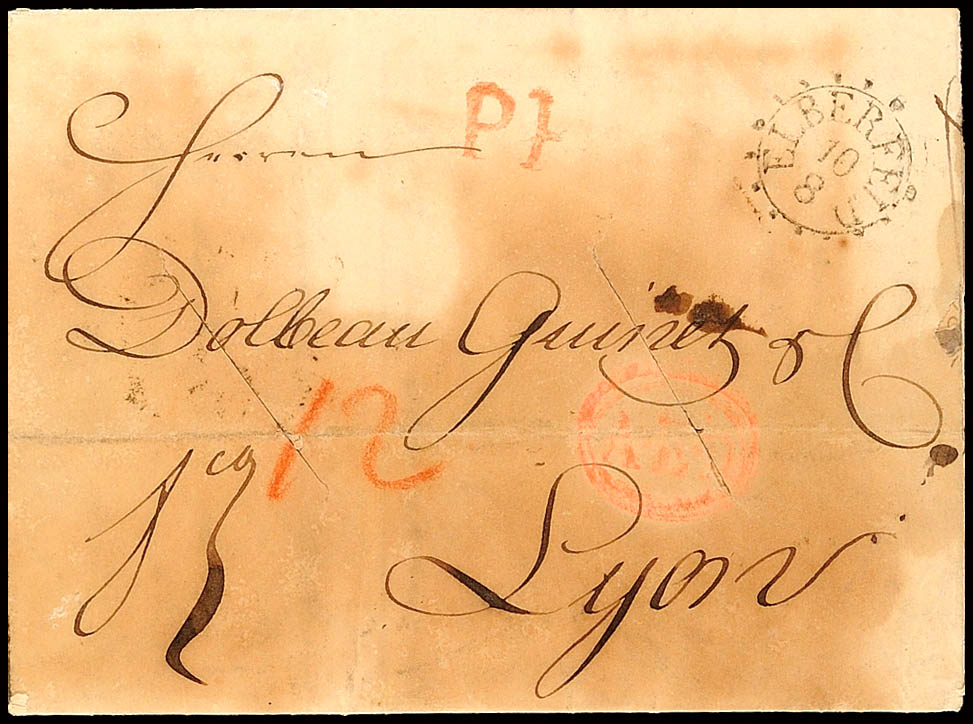 Herren
P.P.
ELBERFELD
10
8
Dolbeau Guinet & C.
12
AED
Lyon